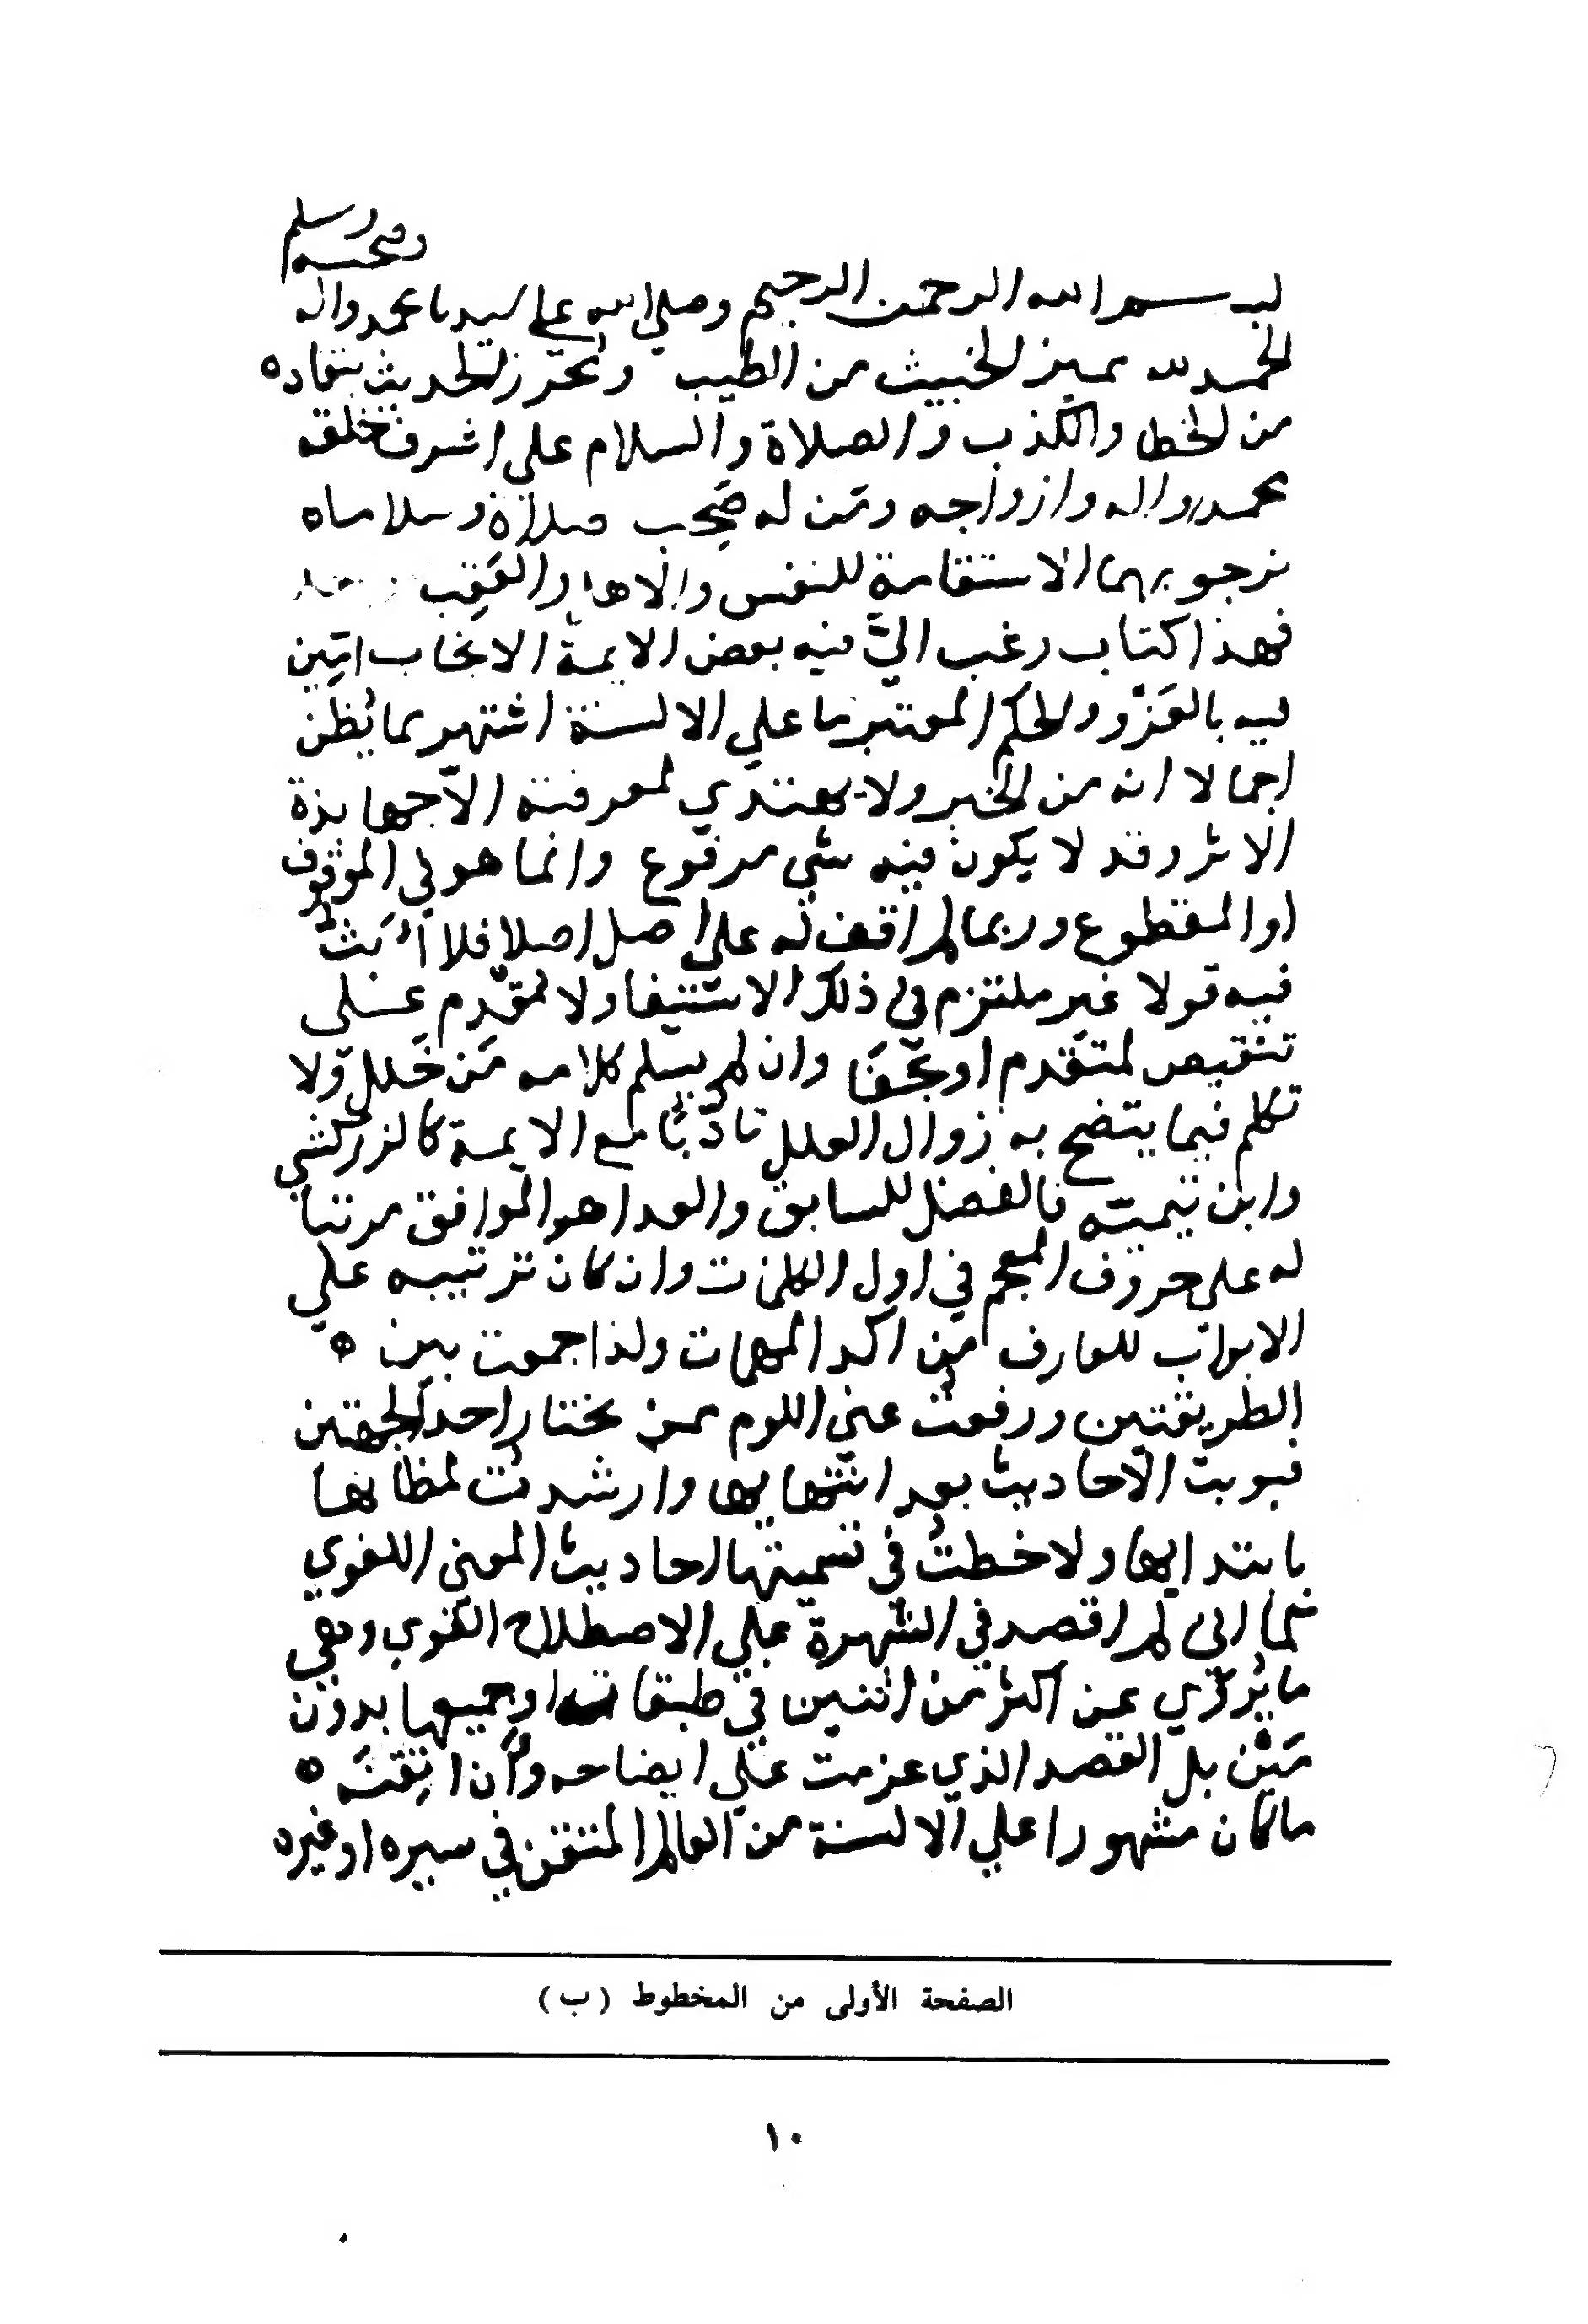 وصحبه وسلم
بسم الله الرحمن الرحيم وصلى الله على سيدنا محمد واله
الحمد لله مميز الخبيث من الطيب ومحرز الحديث بنقاده
من الخطا والكذب والصلاة والسلام على اشرف خلقه
محمد واله وازواجه ومن له صحب صلاة وسلاما
نرجو بهما الاستقامة للنفس والاهل والعقب
فهذا كتاب رغب الي فيه بعض الايمة الانجاب ابين
فيه بالعزو والحكم المعتبر ما علي الالسنة اشتهر مما يظن
اجمالا انه من الخبر ولا يهتدي لمعرفته الا جهابذة
الاثر وقد لا يكون فيه شي مرفوع وانما هو في الموقوف
او المقطوع وربما لم اقف له علي اصل اصلا فلا أبت
فيه قولا غير ملتزم في ذلك الاستيفا ولا مقدم على
تنقيص لمتقدم او بجفا وان لم يسلم كلامه من خلل ولا
تكلم فيما يتضح به زوال العلل تادبا مع الايمة كالزركشي
وابن تيمية فالفضل للسابق والعدل هو الموافق مرتبا
له علي حروف المعجم في اول الكلمات وان كان ترتيبه علي
الابواب للعارف من اكد المهمات ولذا جمعت بين
الطريقتين ورفعت عني اللوم ممن يختار احد الجهتين
فبوبت الاحاديث بعد انتهايها وارشدت لمظانها
بابتدايها ولاحظت في تسميتها احاديث المعني اللغوي
كما اني لم اقصد في الشهرة علي الاصطلاح القوي وهي
ما يروي عن اكثر من اثنين في طبقاته او جميعها بدون
مين بل القصد الذي عزمت علي ايضاحه وأن اتقنه
ما كان مشهورا علي الالسنة من العالم المتقن في سيره او غيره
الصفحة الأولى من المخطوط (ب)
١٠